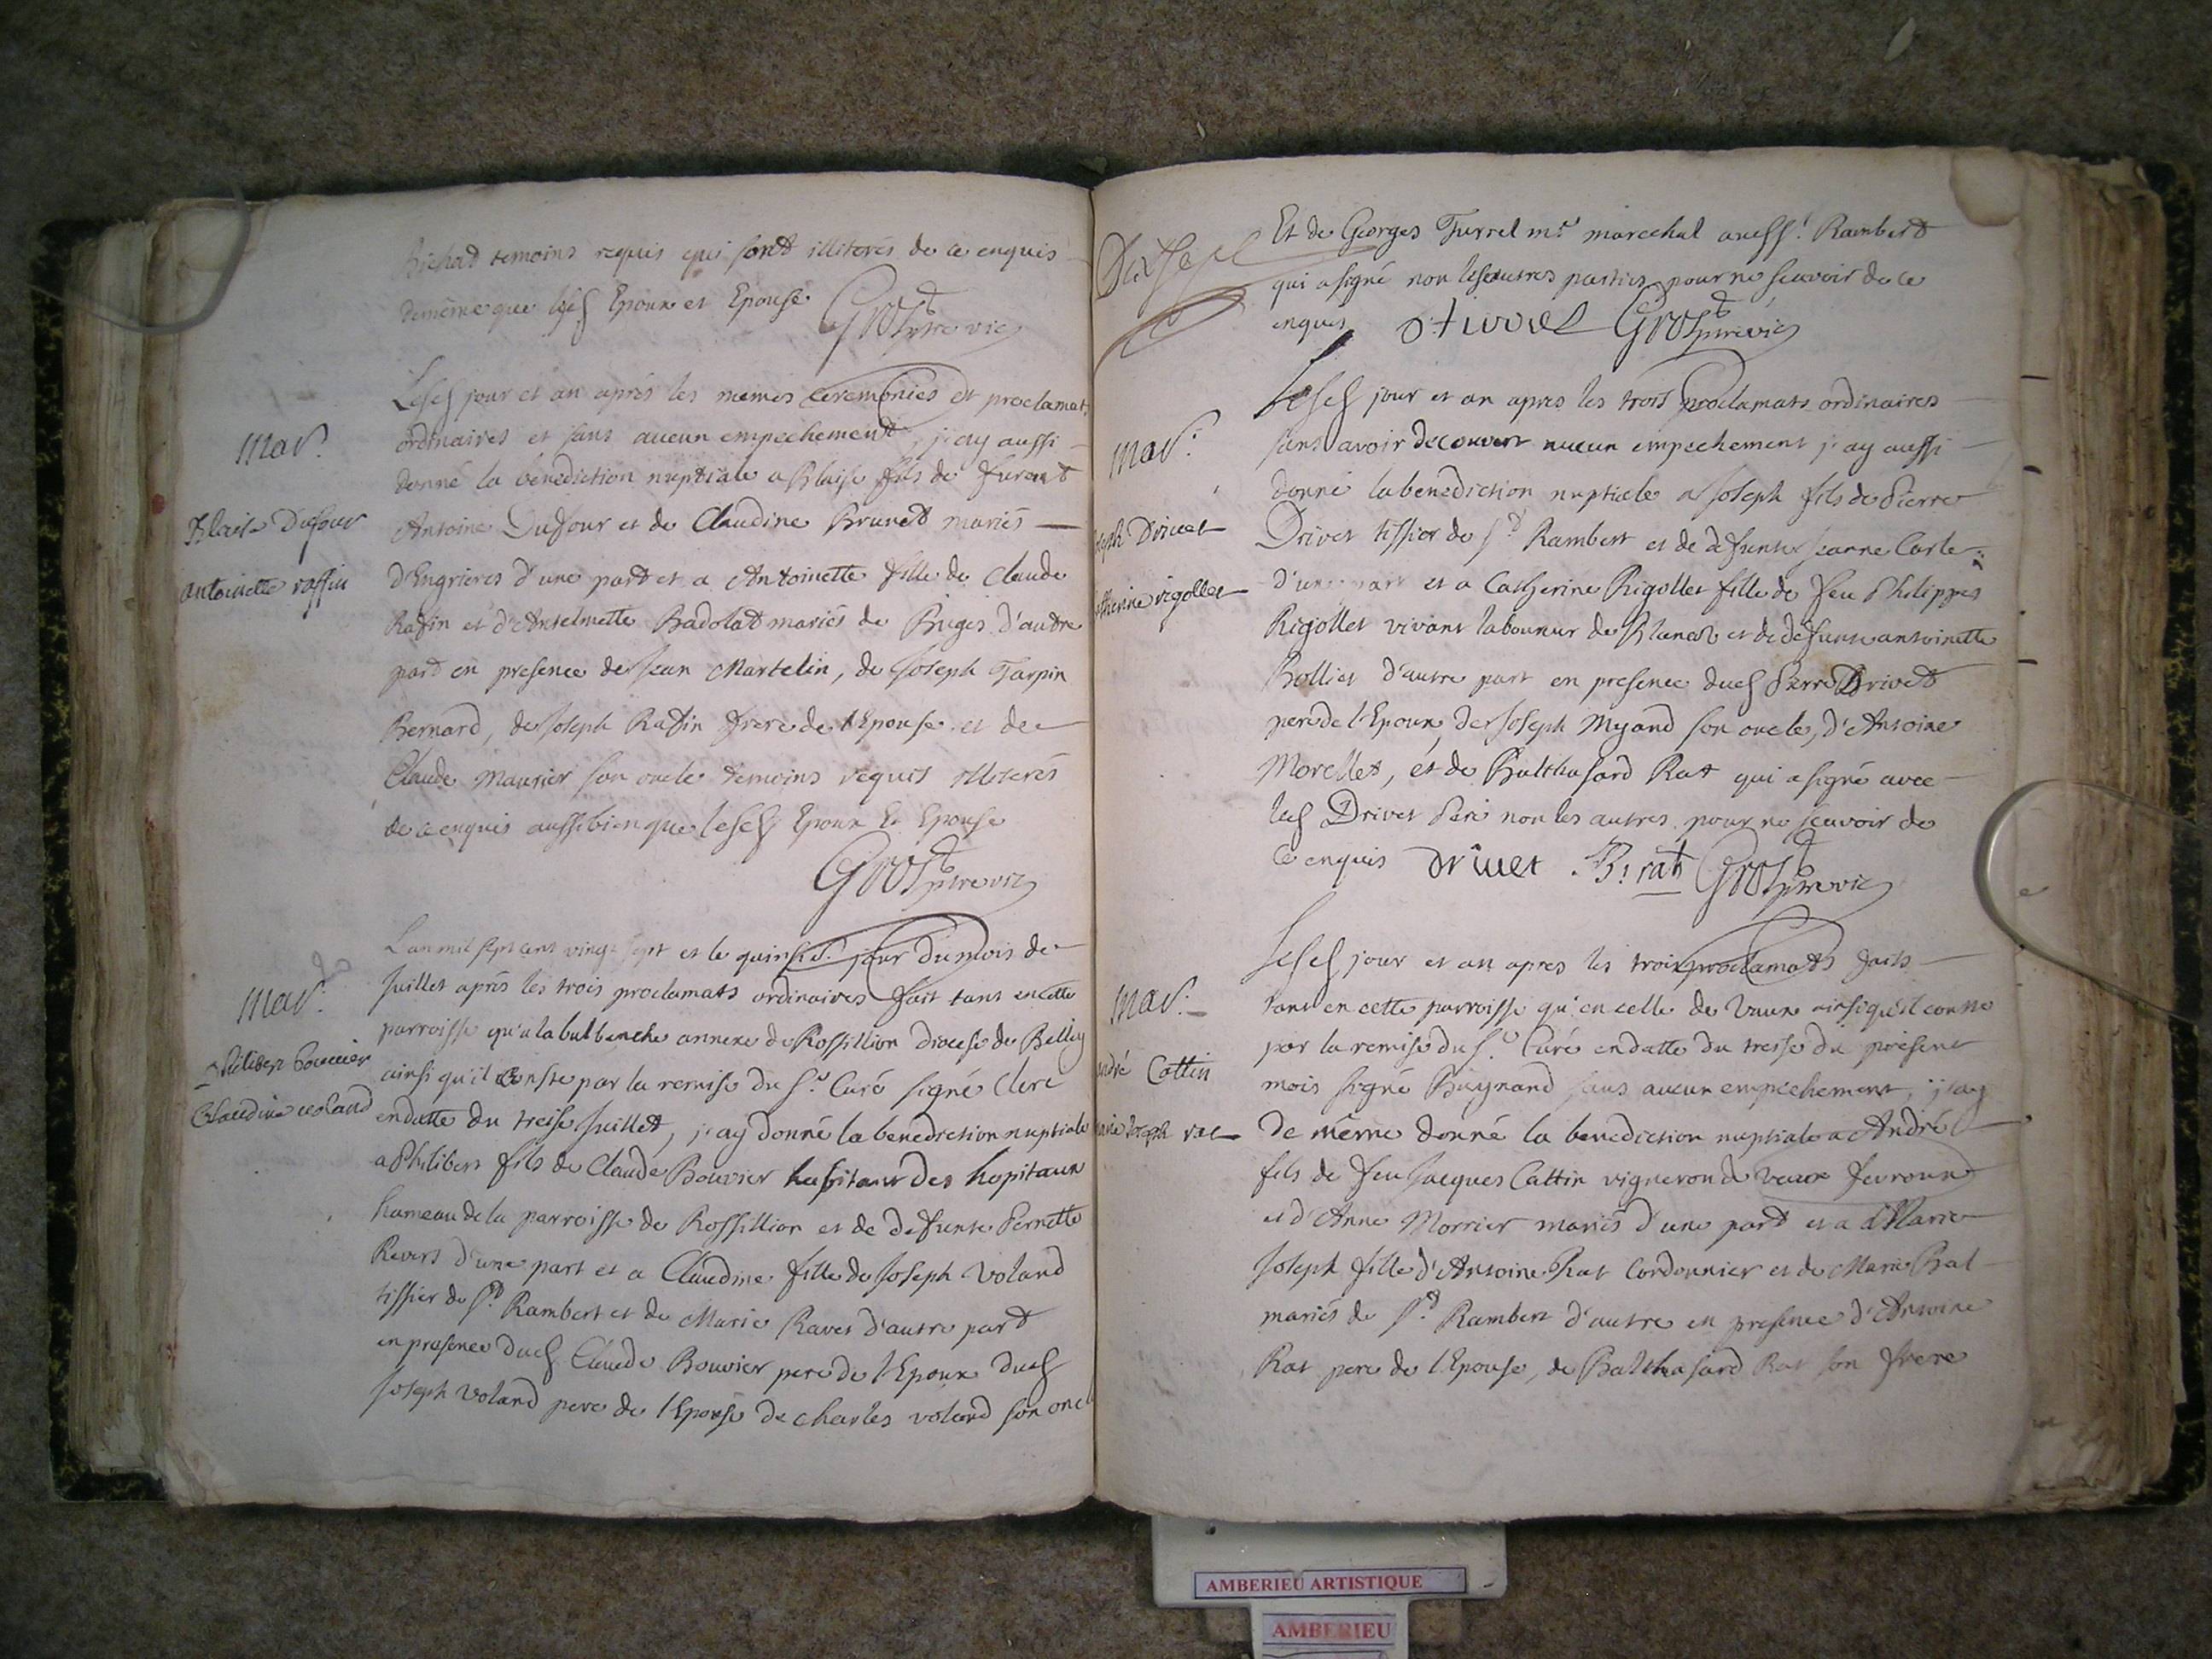 Richad temoins requis qui sont illiterés de ce enquis
demême que lesd Epoux et Epouse Gros ptre vic
Lesd jour et an aprés les memes ceremonies et proclamat.
ordinaires et sans aucun empechement, j'ay aussi
donné la benediction nuptiale a Blaise fils de furent
Antoine Dufour et de Claudine Brunet mariés
d'Engrieres d'une part et a Antoinette fille de Claude
Rafin et d'Antelmette Badolat mariés de Buges d'autre
part en presence de Jean Martelin, de Joseph Tarpin
Bernard, de Joseph Rafin frere de l'Epouse et de
Claude Maurier son oncle temoins requis illiterés
de ce enquis aussibien que lesd Epoux Et Epouse
Gros ptre vic
Mar.
Blaise Dufour
antoinette raffin
L'an mil sept cent vingt sept et le quinsie. jour du mois de
Juillet aprés les trois proclamats ordinaires fait tant en cette
parroisse qu'a la bulbenche annexe de Rossillion diocese de Belley
ainsi qu'il conste par la remise du Sr. Curé signé Clerc
en datte du treise Juillet, j'ay donné la benediction nuptiale
a Philibert fils de Claude Bouvier habitant des hopitaux
hameau de la parroisse de Rossillion et de defunte Pernette
Revert d'une part et a Claudine fille de Joseph Voland
tissier de St. Rambert et de Marie Ravet d'autre part
en presence dud Claude Bouvier pere de l'Epoux dud
Joseph Voland pere de l'Epouse de charles voland son oncl
Mar.
philibert bouvier
Claudine uoland
Et de Georges Turrel mre marechal aud St. Rambert
qui a signé non les autres parties pour ne scavoir de ce
enquis G turrel Gros ptre vic
Dixsept
Lesd jour et an apres les trois proclamats ordinaires
sans avoir decouvert aucun empechement j'ay aussi
donné la benediction nuptiale a Joseph fils de Pierre
Drivet tissier de St. Rambert et de defunte Jeanne Carle
d'une part et a Catherine Rigollet fille de feu Philippes
Rigollet vivant laboureur de Blanas et de defunte antoinette
Bolliet d'autre part en presence dud Pierre Drivet
pere de l'Epoux, de Joseph Myand son oncle, d'Antoine
Morellet, et de Balthasard Rat qui a signé avec
led Drivet Pere non les autres pour ne scavoir de
ce enquis driuet B. rat Gros ptre vic
Mar.
oseph Driuet
atherine rigollet
Lesd jour et an apres les trois proclamats faits
tant en cette parroisse qu'en celle de Vaux ainsi qu'il conste
par la remise du Sr. Curé en datte du treise du present
mois signé Buynand sans aucun empechement, j'ay
de même donné la benediction nuptiale a André
fils de feu Jacques Cattin vigneron de vaux fevroux
et d'Anne Morrier mariés d'une part et a Marie
Joseph fille d'Antoine Rat Cordonnier et de Marie Bal
mariés de St. Rambert d'autre en presence d'Antoine
Rat pere de l'Epouse, de Balthasard Rat son frere
Mar.
andré Cattin
marie Joseph rat
AMBERIEU ARTISTIQUE
AMBERIEU